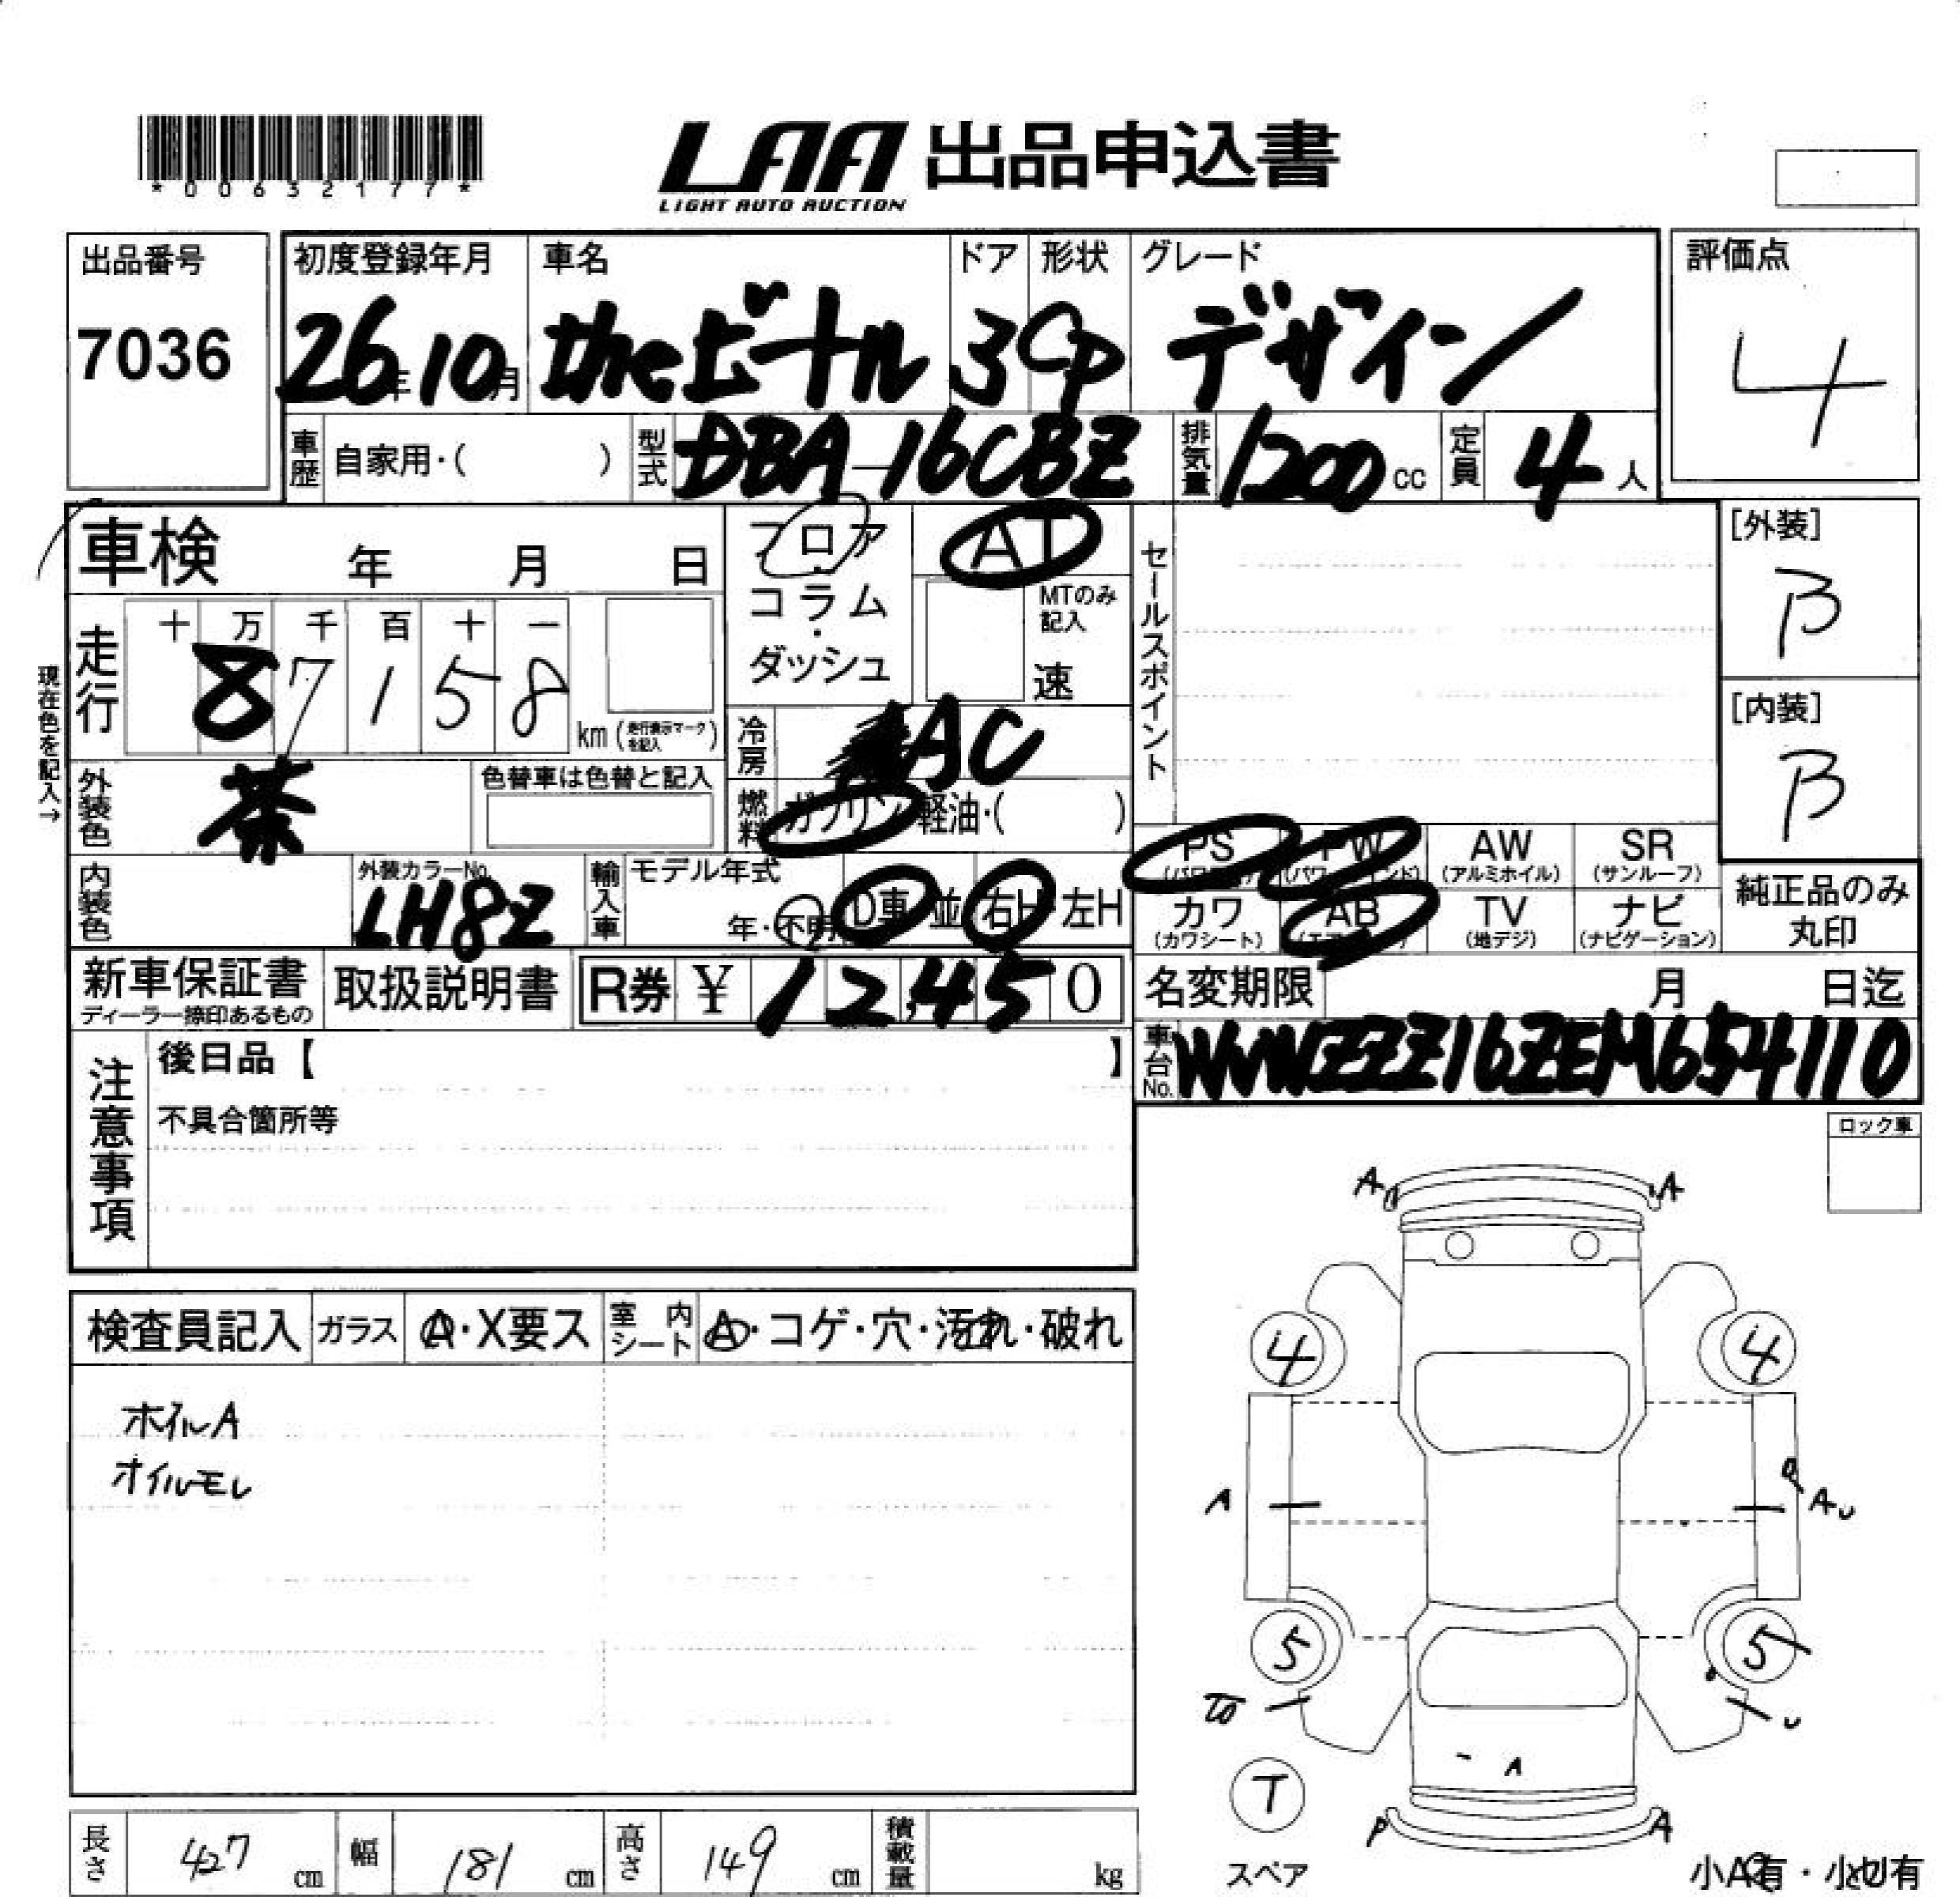 *00632177*
LAA 出品申込書
LIGHT AUTO AUCTION
出品番号
7036
初度登録年月 車名 ドア 形状 グレード
26年10月 theビートル 3 Cp デザイン
評価点
4
車歴 自家用・( ) 型式 DBA-16CBZ 排気量 1200cc 定員 4人
車検 年 月 日
フロア・コラム・ダッシュ
AT
MTのみ記入
速
セールスポイント
[外装]
B
[内装]
B
現在色を記入→
走行 十 万 千 百 十 一
8 7 1 5 8 km(走行表示マークを記入)
冷房 AC
外装色 茶 色替車は色替と記入
燃料 ガソリン・軽油・( )
PS (パワステ) PW (パワーウインド) AW (アルミホイル) SR (サンルーフ)
カワ (カワシート) AB (エアバッグ) TV (地デジ) ナビ (ナビゲーション)
純正品のみ丸印
内装色 外装カラーNo. LH8Z 輸入車 モデル年式 年・不明 D車 並 右H・左H
新車保証書 ディーラー捺印あるもの 取扱説明書 R券 ¥ 12,450
名変期限 月 日迄
車台No. WVWZZZ16ZEM654110
注意事項
後日品【 】
不具合箇所等
ロック車
検査員記入 ガラス A・X要ス 室内シート A・コゲ・穴・汚れ・破れ
ホイルA
オイルモレ
A A
4 4
A A U
5 5
U
A
T
スペア
P A
小A有・小凹有
長さ 427 cm 幅 181 cm 高さ 149 cm 積載量 kg